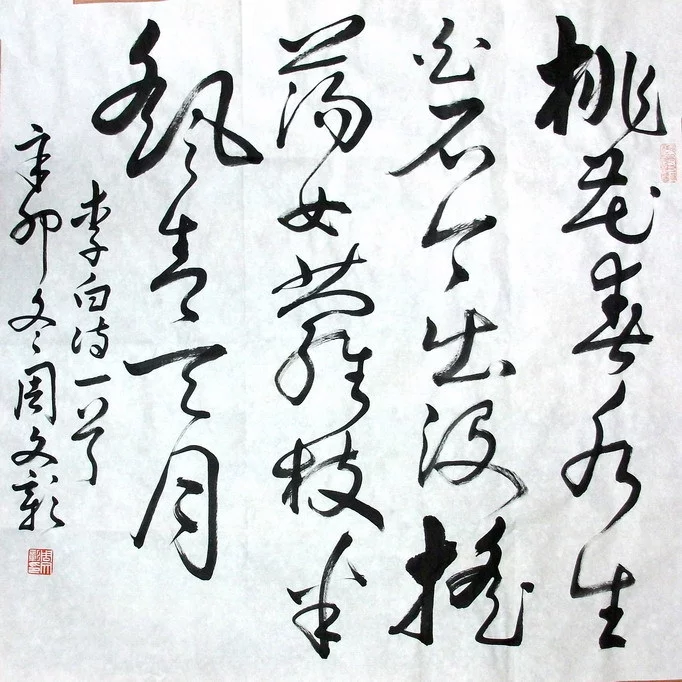 桃花春水生
白石今出没搖
蕩女蘿枝半
颻青天月
李白诗一首
辛卯冬周文彰